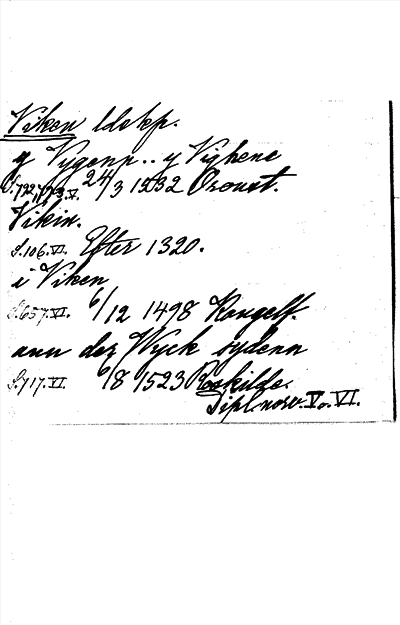 Viken ldskp.
y Vygenn .. y Vighene
S. 792, 793. V. 24/3 1532 Oroust.
Vikin.
S. 106. VI. Efter 1320.
i Viken
S. 657. VI. 6/12 1498 Kongelf.
ann der Wyck sydenn
S. 717. VI. 1/8 1523 Roskilde.
Dipl. norv. V. o. VI.